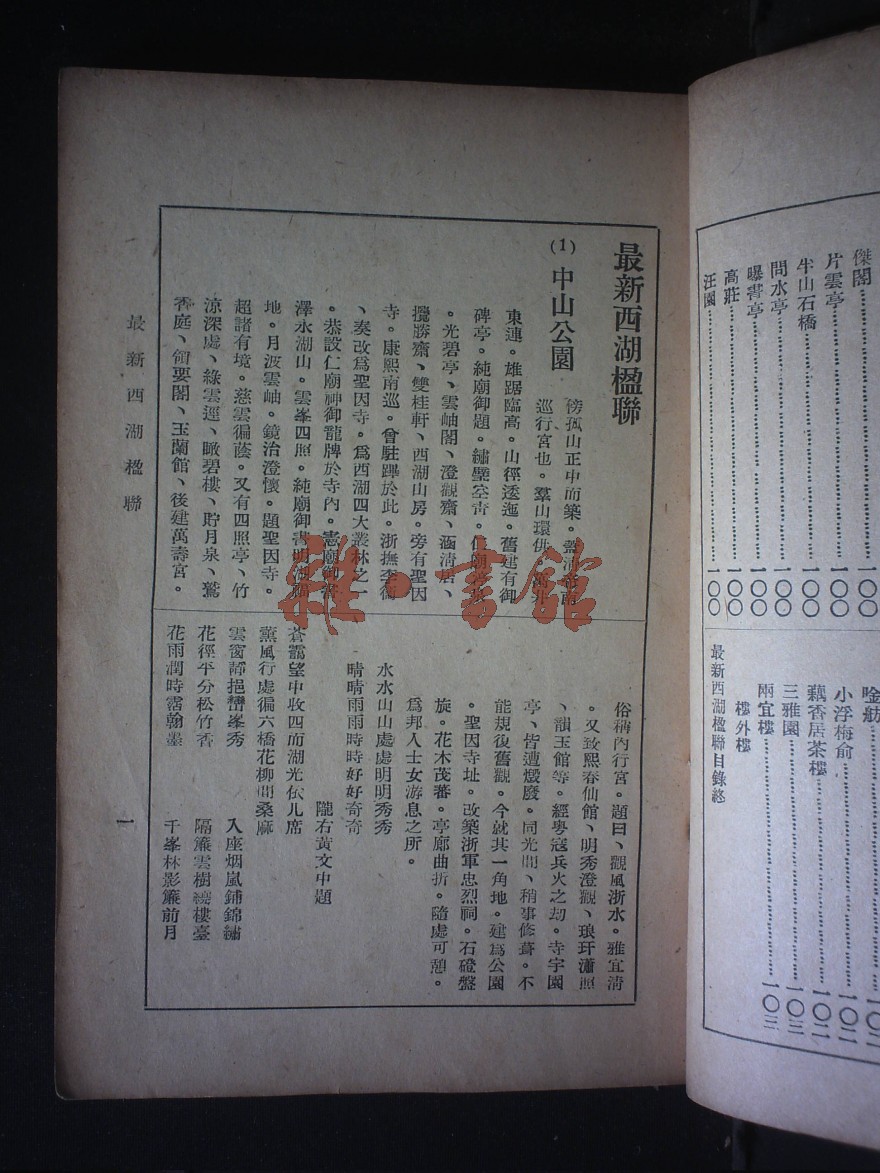 傑閣⋯⋯一〇〇
片雲亭⋯⋯一〇〇
半山石橋⋯⋯一〇〇
問水亭⋯⋯一〇〇
曝書亭⋯⋯一〇〇
高莊⋯⋯一〇〇
汪園⋯⋯一〇〇
小浮梅俞⋯⋯一〇二
藕香居茶樓⋯⋯一〇二
三雅園⋯⋯一〇三
兩宜樓⋯⋯一〇三
樓外樓
最新西湖楹聯目錄終
最新西湖楹聯
(1) 中山公園
傍孤山正中而築。蓋清帝南
巡行宮也。羣山環供。萬井
東連。雄踞臨高。山徑逶迤。舊建有御
碑亭。純廟御題。繡壁
。光碧亭、雲岫閣、澄觀齋、涵清居、
攬勝齋、雙桂軒、西湖山房。旁有聖因
寺。康熙南巡。曾駐蹕於此。浙撫李衛
、奏改爲聖因寺。爲西湖四大叢林之一
。恭設仁廟神御龍牌於寺內。憲廟御書
澤永湖山。雲峯四照。純廟御書明湖
地。月波雲岫。鏡治澄懷。題聖因寺。
超諸有境。慈雲徧蔭。又有四照亭、竹
涼深處、綠雲逕、瞰碧樓、貯月泉、鷲
香庭、領要閣、玉蘭館、後建萬壽宮。
俗稱內行宮。題曰、觀風浙水。雅宜清
。又致熙春仙館、明秀澄觀、琅玕瀟照
、韻玉館等。經粵寇兵火之刧。寺宇園
亭、皆遭燬廢。同光間、稍事修葺。不
能規復舊觀。今就其一角地。建爲公園
。聖因寺址。改築浙軍忠烈祠。石磴盤
旋。花木茂蕃。亭廊曲折。隨處可憩。
爲邦人士女游息之所。
水水山山處處明明秀秀
晴晴雨雨時時好好奇奇
隴右黃文中題
蒼靄望中收四面湖光依几席
薰風行處徧六橋花柳間桑麻
雲窗靜挹巒峯秀　入座烟嵐鋪錦繡
花徑平分松竹香　隔簾雲樹繞樓臺
花雨潤時霑翰墨　千峯林影簾前月
最新西湖楹聯
一
雜·書館